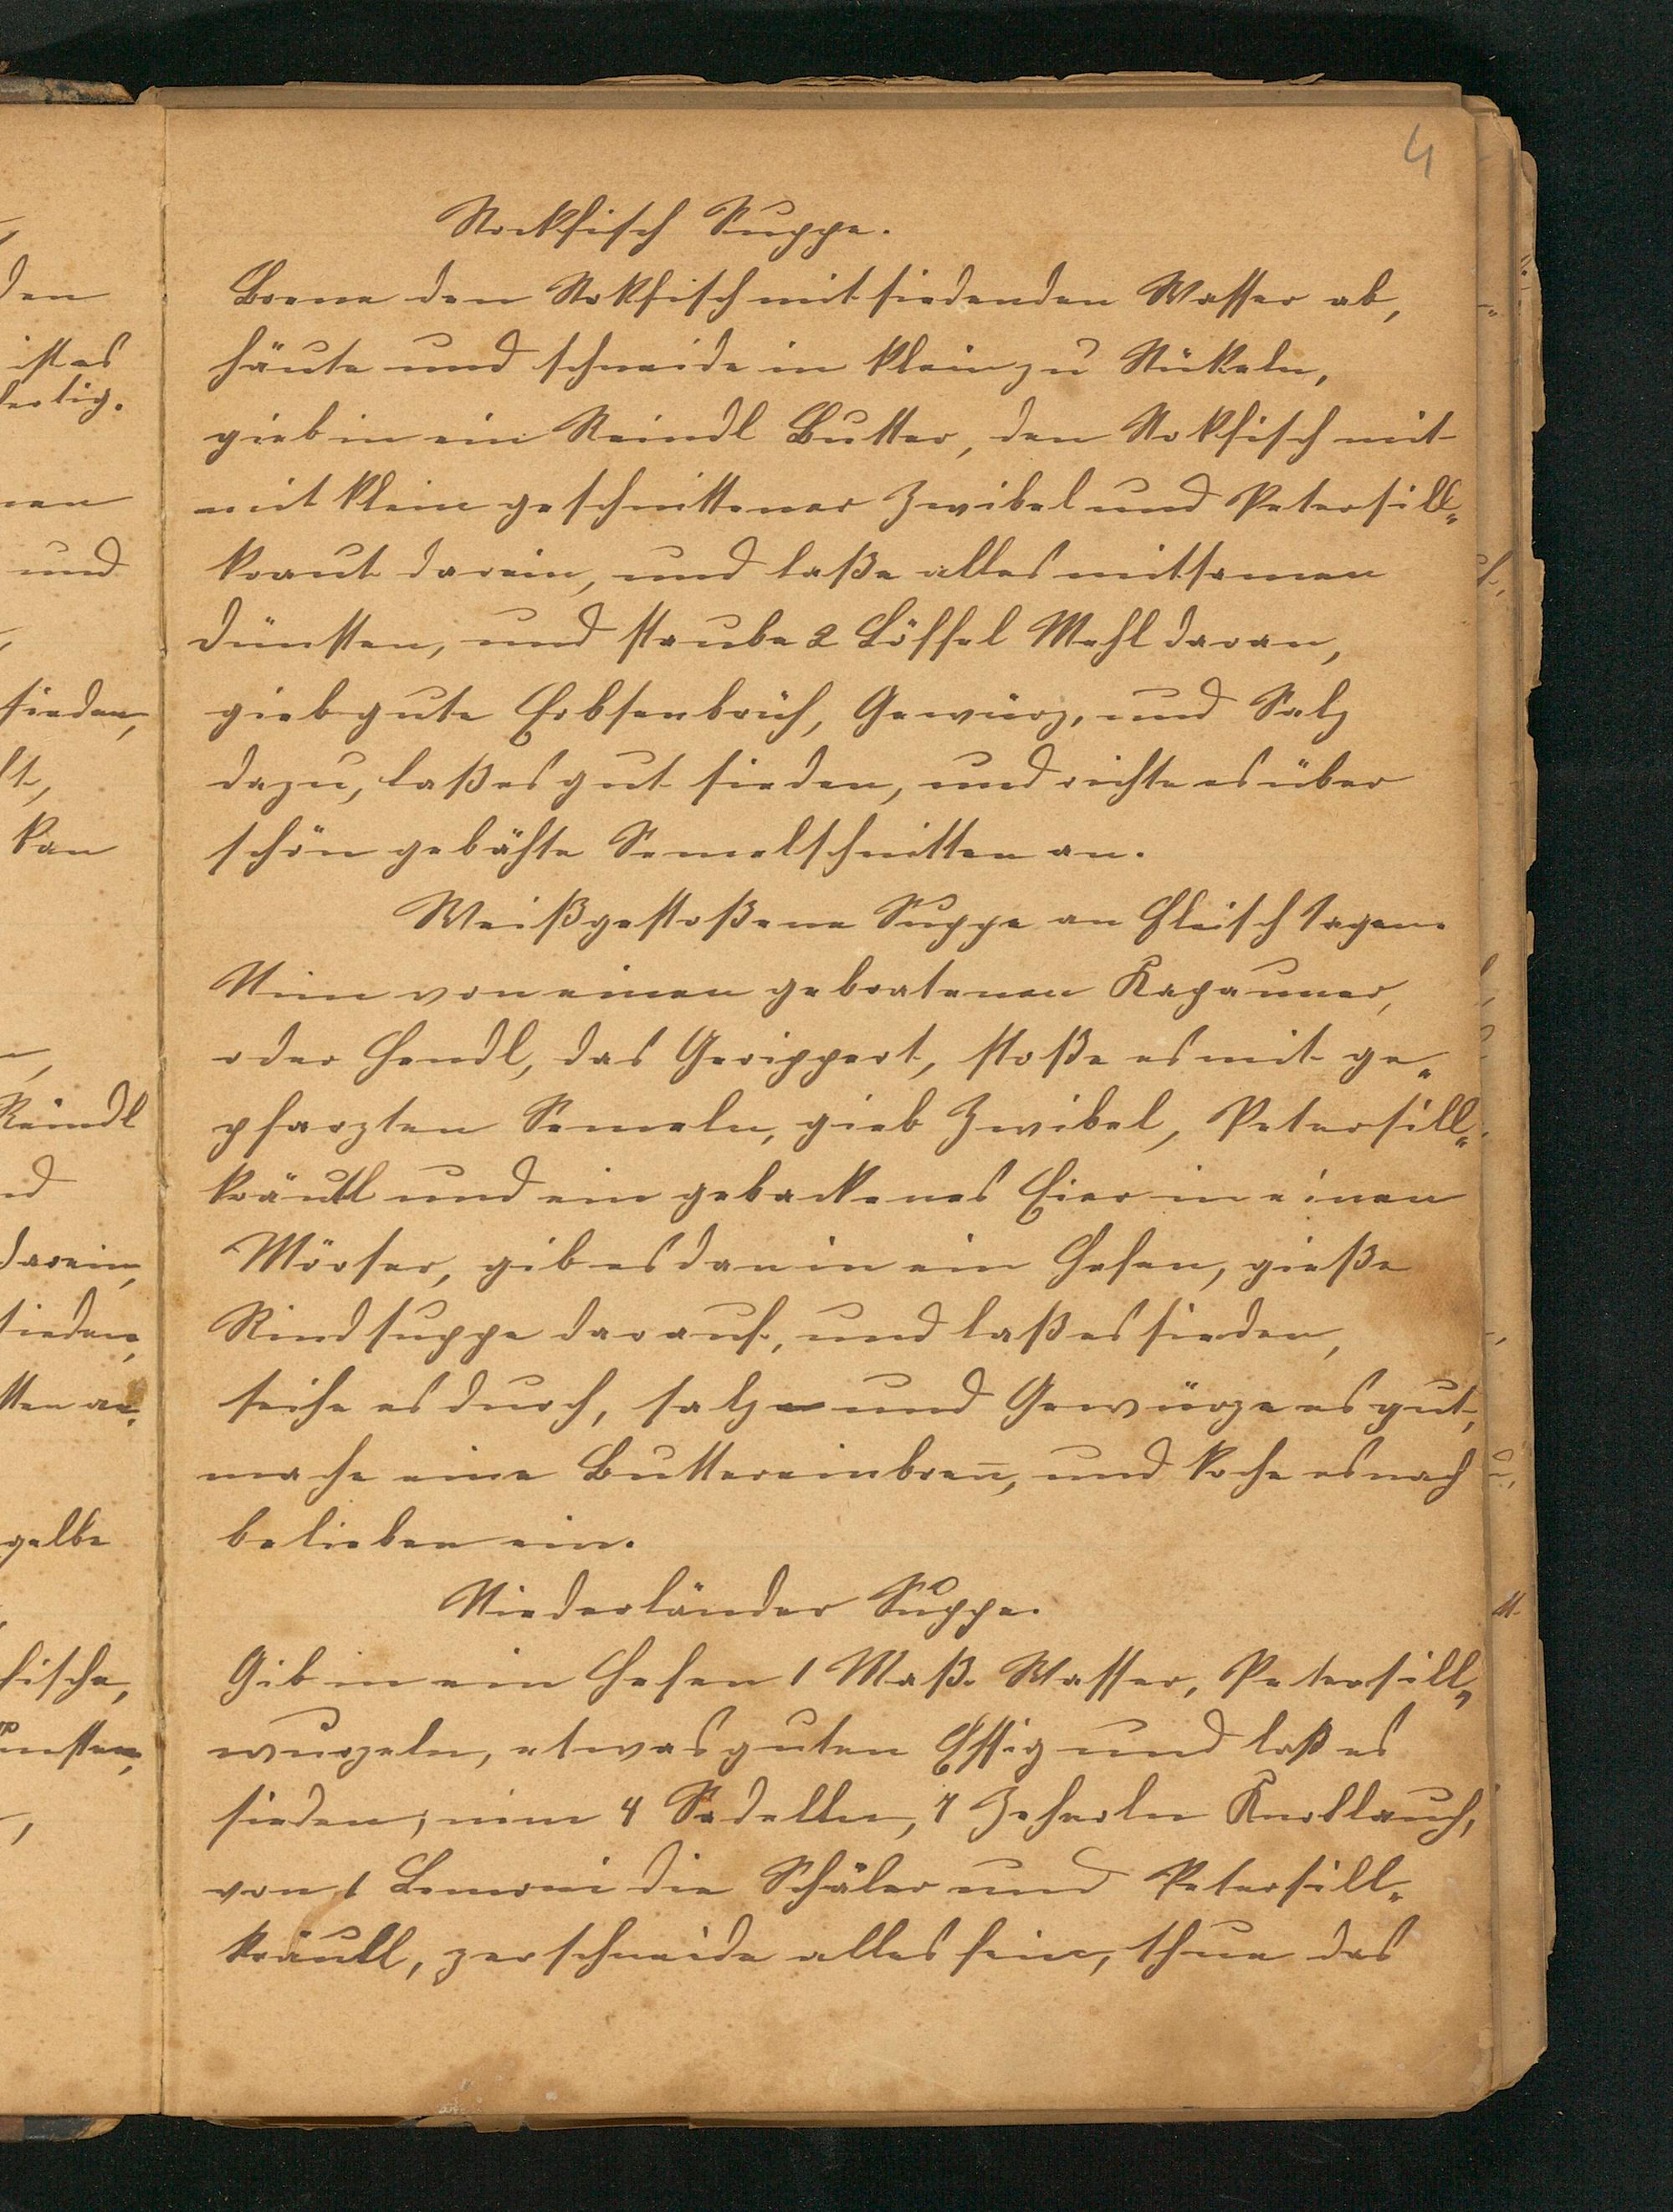 4
Stockfisch Suppe.
Brene den Stokfisch mit siedenden Wasser ab,
häute und schneide in klein zu Stükeln,
gieb in ein Reindl Butter, den Stokfisch mit
mit klein geschnittener Zwibel und Petersill„
kraut darein, und laße alles mitsamen
dünsten, und staube 2 Löffel Mehl daran,
gieb gute Erbsenbrüh, Gewürz, und Salz
dazu, laß es gut sieden, und richte es über
schön gebähte Semelschnitten an.
Weißgestoßene Suppe an Fleischtagen.
Nim von einen gebratenen Kapauner,
oder Hendl, das Gerippert, stoße es mit ge„
pfarzten Semeln, gieb Zwibel, Petersill„
kräutl und ein gebackenes Eier in einen
Mörser, gib es dan in ein Hefen, gieße
Rindsuppe darauf, und laß es sieden,
seihe es durch, salze und Gewürze es gut,
mache eine Buttereinbren̄, und koche es nach
belieben ein.
Niederländer Suppe.
Gib in ein Hefen 1 Maß. Wasser, Petersill„
wurzeln, etwas guten Essig und laß es
sieden, nim 4 Sadellen, 4 Zeherln Knoblauch,
von 1 Lemoni die Schäler und Petersill„
kräutl, zerschneide alles fein, thue das